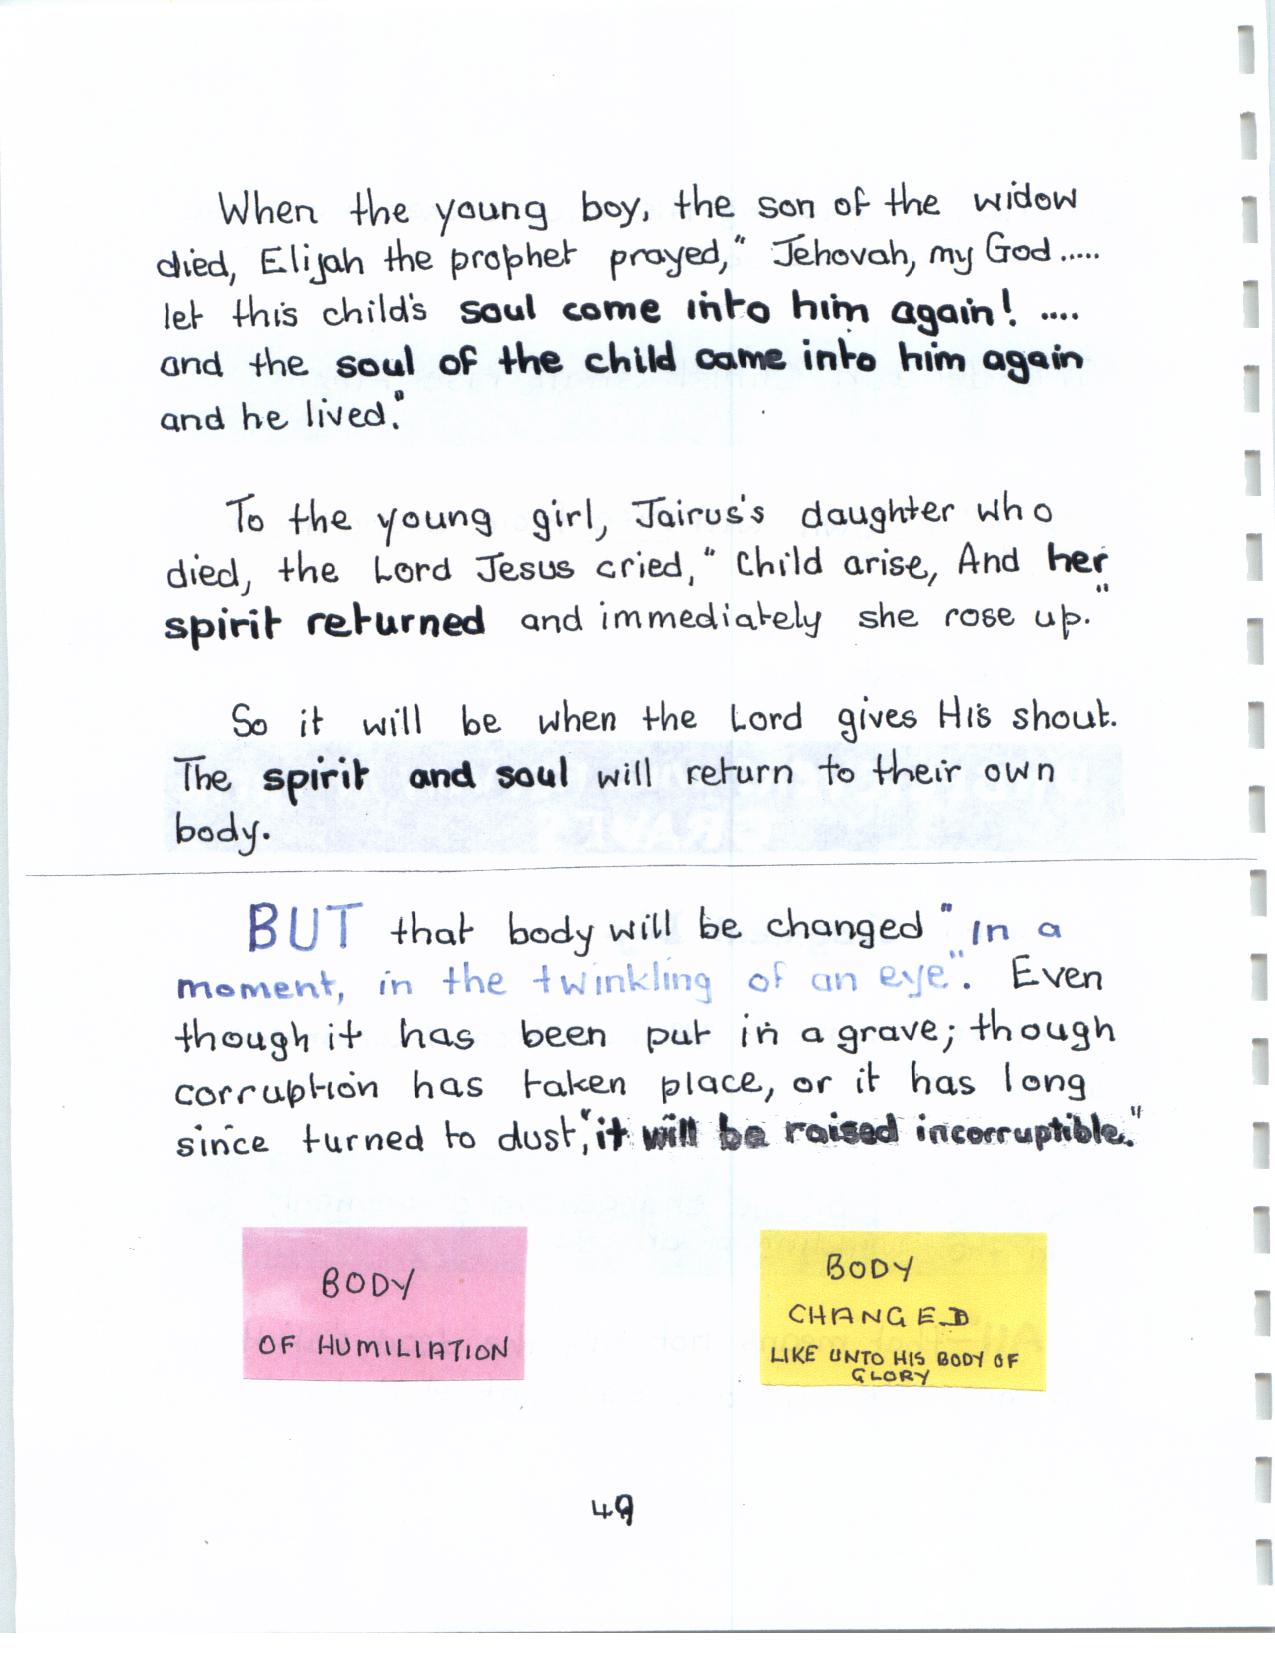 When the young boy, the son of the widow
died, Elijah the prophet prayed," Jehovah, my God .....
let this child's soul come into him again! ....
and the soul of the child came into him again
and he lived."
To the young girl, Jairus's daughter who
died, the Lord Jesus cried," Child arise, And her
spirit returned and immediately she rose up."
So it will be when the Lord gives His shout.
The spirit and soul will return to their own
body.
BUT that body will be changed "in a
moment, in the twinkling of an eye". Even
though it has been put in a grave; though
corruption has taken place, or it has long
since turned to dust,"it will be raised incorruptible."
BODY
OF HUMILIATION
BODY
CHANGED
LIKE UNTO HIS BODY OF
GLORY
49